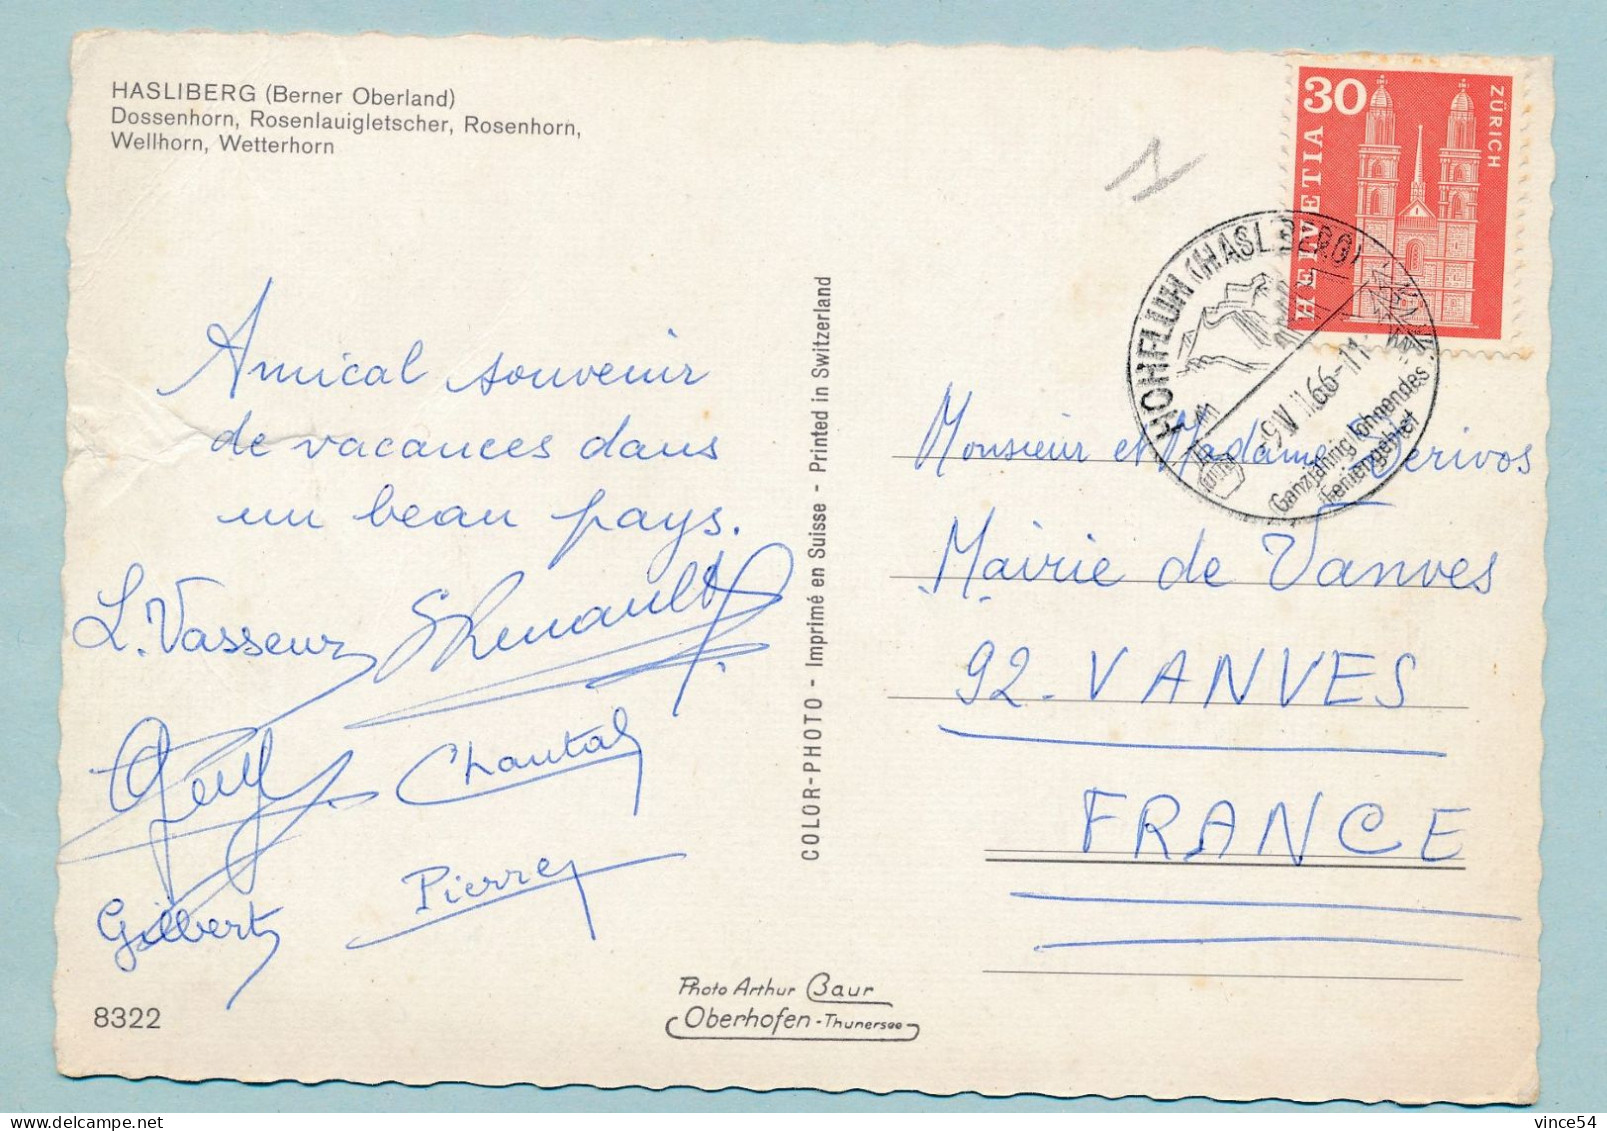 HASLIBERG (Berner Oberland)
Dossenhorn, Rosenlauigletscher, Rosenhorn,
Wellhorn, Wetterhorn
Amical souvenir
de vacances dans
un beau pays.
L. Vasseur
Renault
Chantal
Gilbert
Pierre
8322
Photo Arthur Baur
Oberhofen - Thunersee
COLOR-PHOTO - Imprimé en Suisse - Printed in Switzerland
30
HELVETIA
ZÜRICH
HOHFLUH (HASLIBERG)
66-11
Ganzjährig lohnendes
Feriengebiet
Monsieur et Madame
Mairie de Vanves
92 - VANVES
FRANCE
vince54